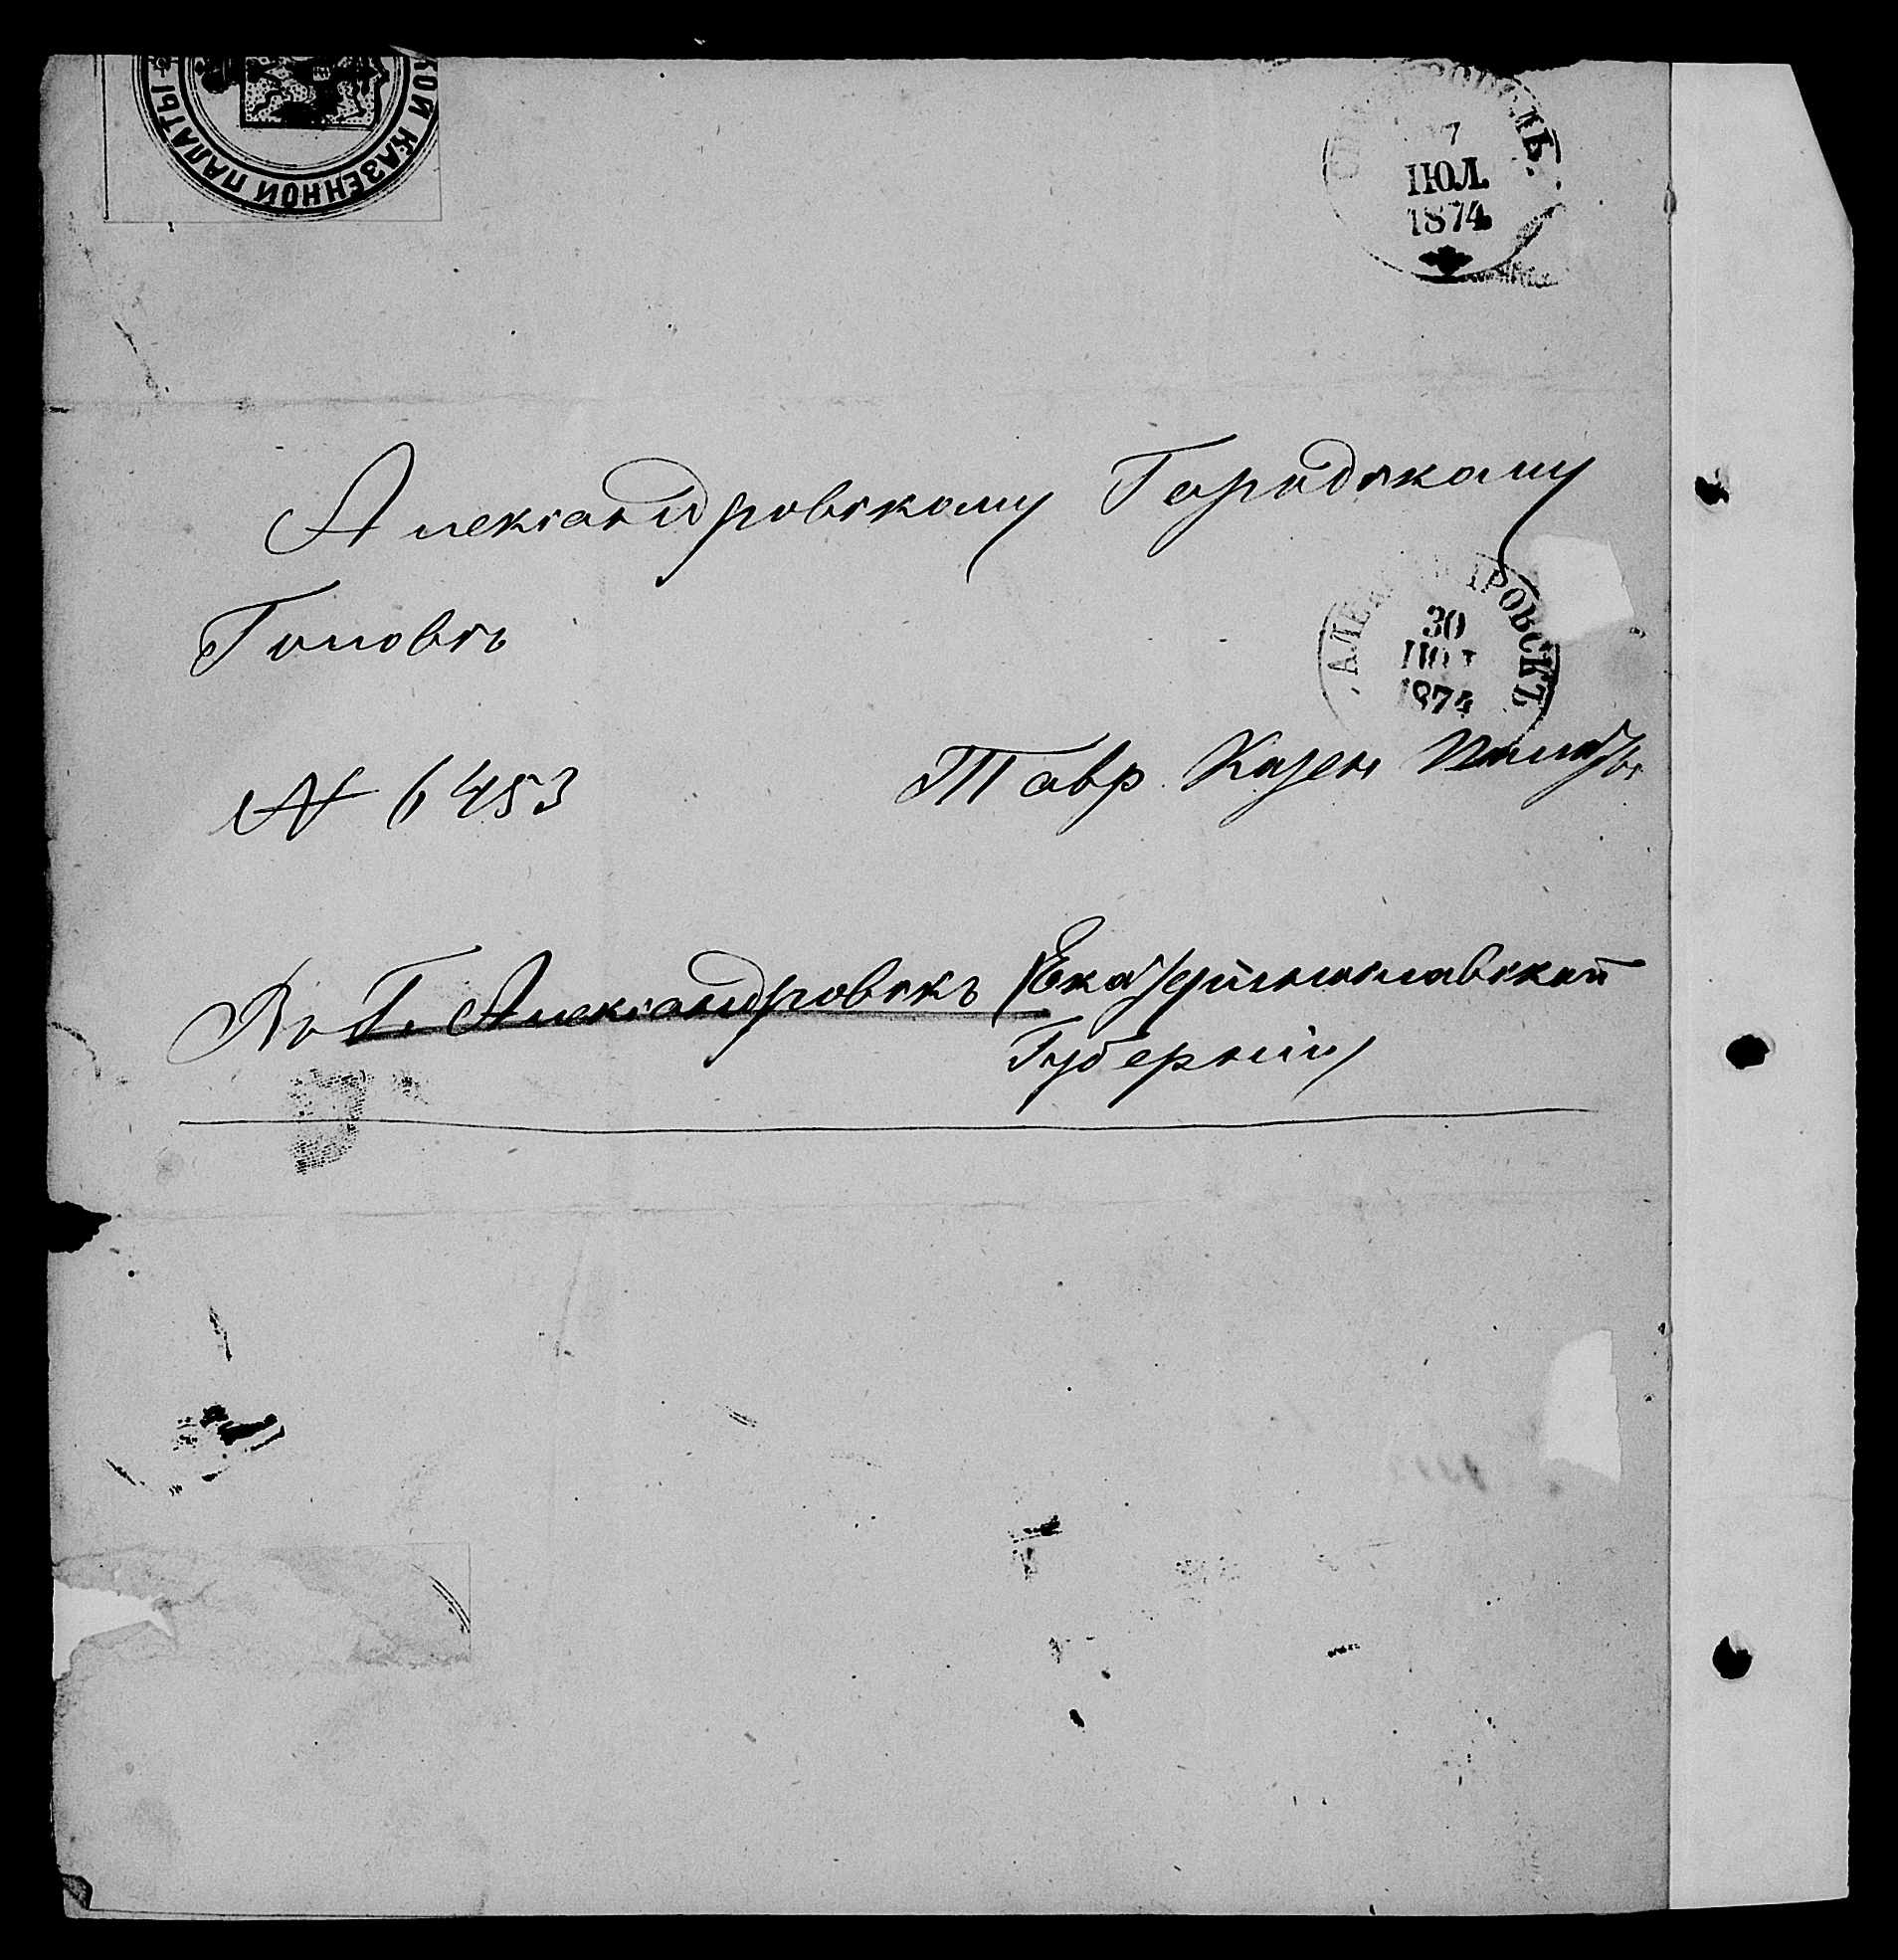 КОЙ КАЗЕННОЙ ПАЛАТЫ
7
ІЮЛ.
1874
Александровскому Городскому
Головѣ
АЛЕ ДРОВСКЪ
30
ІЮЛ
1874
№ 6453
Тавр. Казен Палаты
Въ Г. Александровскъ Екатеринославской
Губерніи